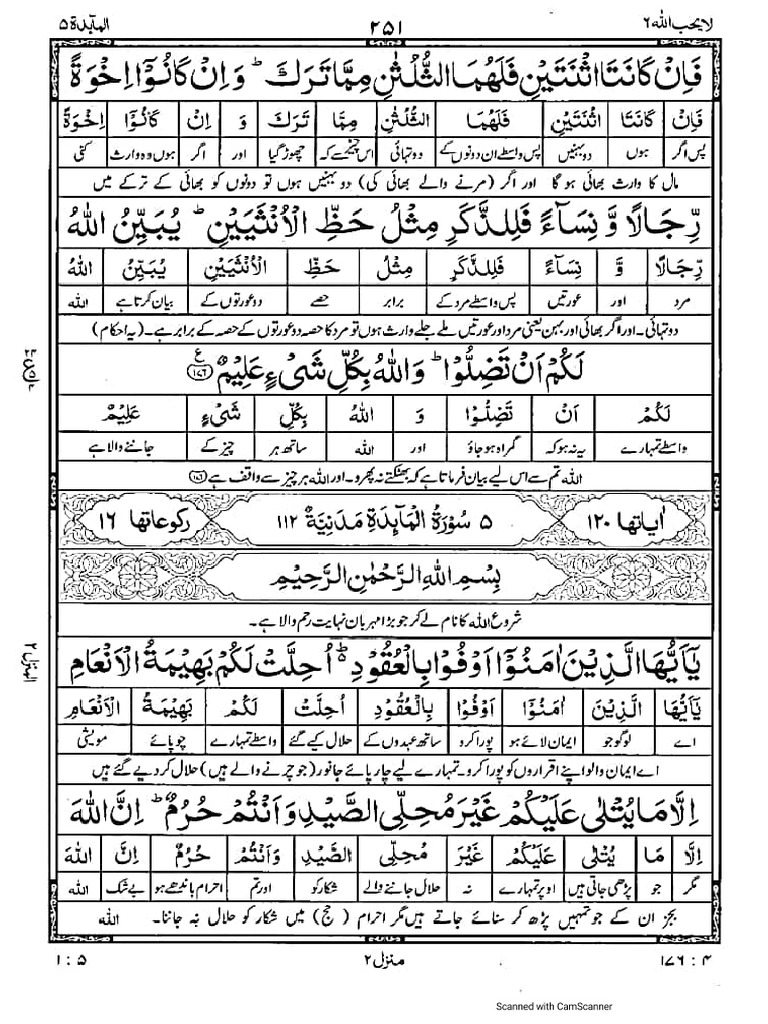 لایحب اللہ ۶ ۲۵۱ المآىِٕدة ۵
فَاِنْ كَانَتَا اثْنَتَیْنِ فَلَهُمَا الثُّلُثٰنِ مِمَّا تَرَكَ ؕ وَ اِنْ كَانُوْۤا اِخْوَةً
فَاِنْ كَانَتَا اثْنَتَیْنِ فَلَهُمَا الثُّلُثٰنِ مِمَّا تَرَكَ وَ اِنْ كَانُوْۤا اِخْوَةً
پس اگر ہوں دو بہنیں پس واسطے ان دونوں کے دو تہائی اس چیز سے کہ چھوڑ گیا اور اگر ہوں وہ وارث کئی
مال کا وارث بھائی ہو گا اور اگر (مرنے والے بھائی کی) دو بہنیں ہوں تو دونوں کو بھائی کے ترکے میں
رِّجَالًا وَّ نِسَآءً فَلِلذَّكَرِ مِثْلُ حَظِّ الْاُنْثَیَیْنِ ؕ یُبَیِّنُ اللّٰهُ
رِّجَالًا وَّ نِسَآءً فَلِلذَّكَرِ مِثْلُ حَظِّ الْاُنْثَیَیْنِ یُبَیِّنُ اللّٰهُ
مرد اور عورتیں پس واسطے مرد کے برابر حصے دو عورتوں کے بیان کرتا ہے اللہ
دو تہائی۔ اور اگر بھائی اور بہن یعنی مرد اور عورتیں ملے جلے وارث ہوں تو مرد کا حصہ دو عورتوں کے حصہ کے برابر ہے۔ (یہ احکام)
لَكُمْ اَنْ تَضِلُّوْا ؕ وَ اللّٰهُ بِكُلِّ شَیْءٍ عَلِیْمٌ ۝۱۷۶ ع
لَكُمْ اَنْ تَضِلُّوْا وَ اللّٰهُ بِكُلِّ شَیْءٍ عَلِیْمٌ
واسطے تمہارے یہ نہ ہو کہ گمراہ ہو جاؤ اور اللہ ساتھ ہر چیز کے جاننے والا ہے
اللہ تم سے اس لیے بیان فرماتا ہے کہ بھٹکتے نہ پھرو۔ اور اللہ ہر چیز سے واقف ہے ۝۱۷۶
اٰیاتھا ۱۲۰ ۵ سُوْرَةُ الْمَآىِٕدَةِ مَدَنِیَّةٌ ۱۱۲ رکوعاتھا ۱۶
بِسْمِ اللّٰهِ الرَّحْمٰنِ الرَّحِیْمِ
شروع اللہ کا نام لے کر جو بڑا مہربان نہایت رحم والا ہے۔
یٰۤاَیُّهَا الَّذِیْنَ اٰمَنُوْۤا اَوْفُوْا بِالْعُقُوْدِ ؕ اُحِلَّتْ لَكُمْ بَهِیْمَةُ الْاَنْعَامِ
یٰۤاَیُّهَا الَّذِیْنَ اٰمَنُوْۤا اَوْفُوْا بِالْعُقُوْدِ اُحِلَّتْ لَكُمْ بَهِیْمَةُ الْاَنْعَامِ
اے لوگو جو ایمان لائے ہو پورا کرو ساتھ عہدوں کے حلال کیے گئے واسطے تمہارے چوپائے مویشی
اے ایمان والو اپنے اقراروں کو پورا کرو۔ تمہارے لیے چار پائے جانور (جو چرنے والے ہیں) حلال کر دیے گئے ہیں
اِلَّا مَا یُتْلٰى عَلَیْكُمْ غَیْرَ مُحِلِّی الصَّیْدِ وَ اَنْتُمْ حُرُمٌ ؕ اِنَّ اللّٰهَ
اِلَّا مَا یُتْلٰى عَلَیْكُمْ غَیْرَ مُحِلِّی الصَّیْدِ وَ اَنْتُمْ حُرُمٌ اِنَّ اللّٰهَ
مگر جو پڑھی جاتی ہیں اوپر تمہارے نہ حلال جاننے والے شکار کو اور تم احرام باندھے ہو بے شک اللہ
بجز ان کے جو تمہیں پڑھ کر سنائے جاتے ہیں مگر احرام (حج) میں شکار کو حلال نہ جاننا۔ اللہ
المنزل ۲
۱ : ۵ منزل ۲ ۱۷۶ : ۴
Scanned with CamScanner